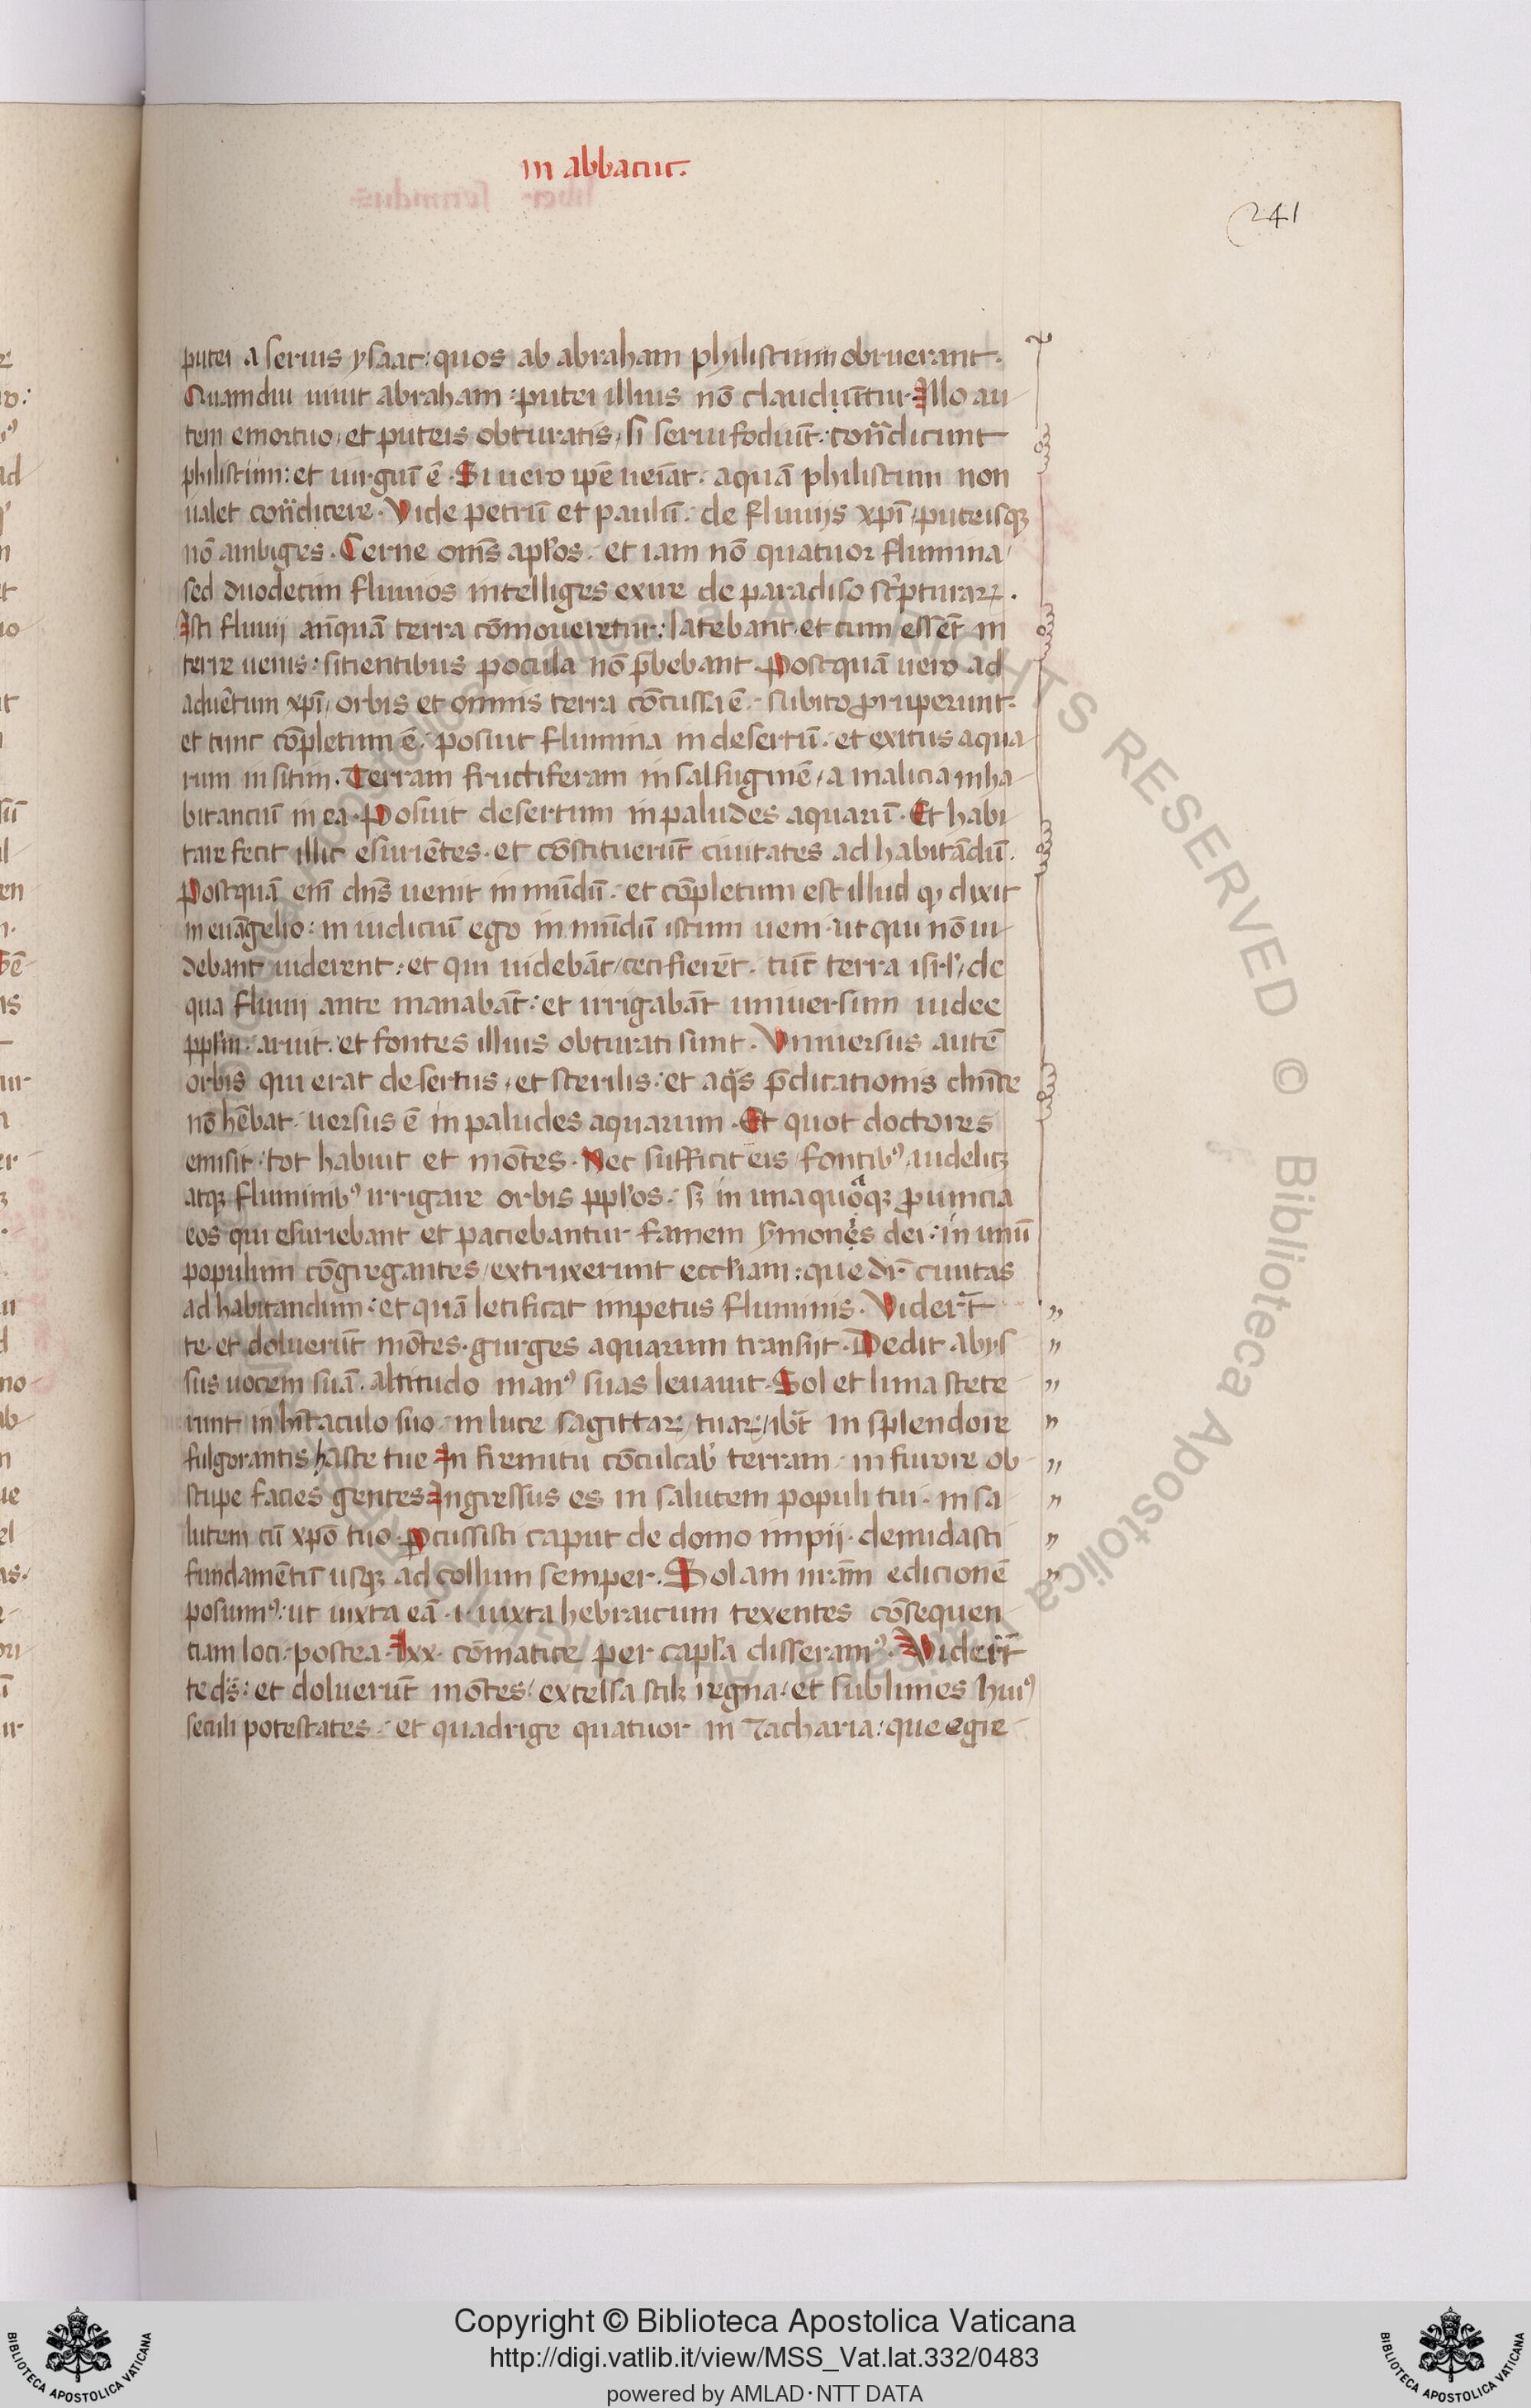 in abbacuc.
241
putei a seruis ysaac: quos ab abraham philistiim obruerant.
Quamdiu uiuit abraham: putei illius nō claudūtur. Illo au
tem emortuo, et puteis obturatis, si serui fodiūt: cont̄dicunt
philistiim: et iurgiū ē. Si uero ip̄e ueīat. aquā philistiim non
ualet cont̄dicere. Vide petrū et paulū. de fluuijs xp̄i, puteisqꝫ
nō ambiges. Cerne om̄s apl̄os. et iam nō quatuor flumina,
sed duodecim fluuios intelliges exire de paradiso sc̄pturaꝝ.
Isti fluuij anq̄uā terra cōmoueretur: latebant. et cum essēt in
terre uenis: sitientibus pocula nō p̄bebant. Postquā uero ad
aduētum xp̄i, orbis et omnis terra cōcussa ē. subito ꝓruperunt.
et tunc cōpletum ē. posuit flumina in desertū. et exitus aqua
rum in sitim. Terram fructiferam in salsuginē, a malicia inha
bitanciū in ea. Posuit desertum in paludes aquarū. Et habi
tare fecit illic esuriētes. et cōstituerūt ciuitates ad habitādū.
Postquā em̄ dn̄s uenit in mūdū. et cōpletum est illud qd̄ dixit
in euāgelio: in iudiciū ego in mūdū istum ueni. ut qui nō ui
debant uiderent: et qui uidebāt, ceci fierēt. tūc terra isrl̄, de
qua fluuij ante manabāt: et irrigabāt uniuersum iudee
ppl̄m. aruit. et fontes illius obturati sunt. Vniuersus autē
orbis qui erat desertus, et sterilis: et aq̄s p̄dicationis diuīe
nō hēbat. uersus ē in paludes aquarum. Et quot doctores
emisit. tot habuit et mōtes. Nec sufficit eis fontibꝰ, uidelicꝫ
atqꝫ fluminibꝰ irrigare orbis ppl̄os. sꝫ in una quāqꝫ ꝓuincia
eos qui esuriebant et paciebantur famem sermonēs dei: in unū
populum cōgregantes, extruxerunt eccl̄iam: que dr̄ ciuitas
ad habitandum: et quā letificat impetus fluminis. Vider̄t
te. et doluerūt mōtes. gurges aquarum transijt. Dedit abys
sus uocem suā. altitudo manꝰ suas leuauit. Sol et luna stete
runt in hīt̄aculo suo. in luce sagittaꝝ tuaꝝ, ibūt in splendore
fulgorantis haste tue In fremitu cōculcabꝰ terram. in furore ob
stupe facies gentes Ingressus es in salutem populi tui. in sa
lutem cū xp̄o tuo. Ꝑcussisti caput de domo impii. denudasti
fundamētū usqꝫ ad collum semper. Solam nr̄am edicionē
posuimꝰ: ut iuxta eā .i. iuxta hebraicum texentes cōsequen
tiam loci: postea .lxx. cōmatice per capl̄a disseramꝰ. Viderūt
te ds̄: et doluerūt mōtes, excelsa scilꝫ regna: et sublimes huiꝰ
seculi potestates. et quadrige quatuor in Zacharia: que egre
Copyright © Biblioteca Apostolica Vaticana
http://digi.vatlib.it/view/MSS_Vat.lat.332/0483
powered by AMLAD·NTT DATA